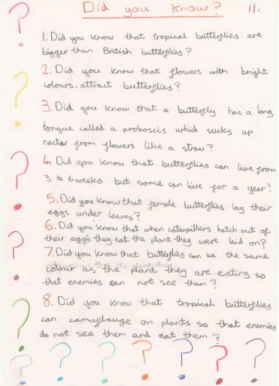 Did you know? 11.
1. Did you know that tropical butterflies are
bigger than British butterflies?
2. Did you know that flowers with bright
colours attract butterflies?
3. Did you know that a butterfly has a long
tongue called a proboscis which sucks up
nectar from flowers like a straw?
4. Did you know that butterflies can live from
3 to 6 weeks but some can live for a year?
5. Did you know that female butterflies lay their
eggs under leaves?
6. Did you know that when caterpillars hatch out of
their eggs they eat the plant they were laid on?
7. Did you know that butterflies can be the same
colour as the plant they are eating so
that enemies can not see them?
8. Did you know that tropical butterflies
can camouflauge on plants so that enemies
do not see them and eat them?